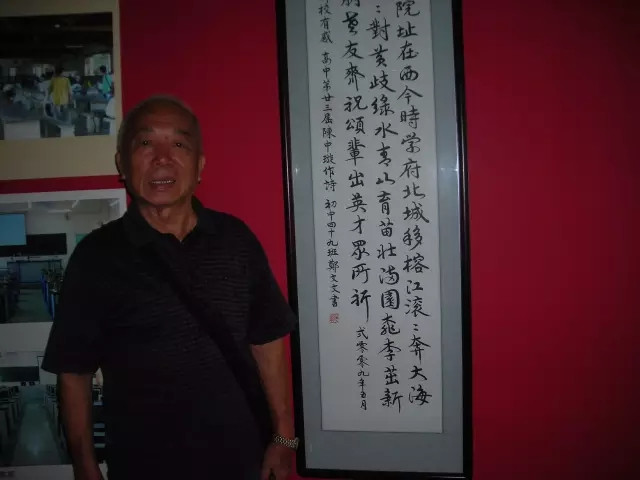 院址在西今時学府北城移榕江滚〻奔大海
〻對黄岐绿水青山育苗壮满園桃李茁新
友齊祝頌輩出英才眾所祈
校有感 高中第廿三届陳中璇作詩 初中四十九班鄭文文書
弍零零九年五月